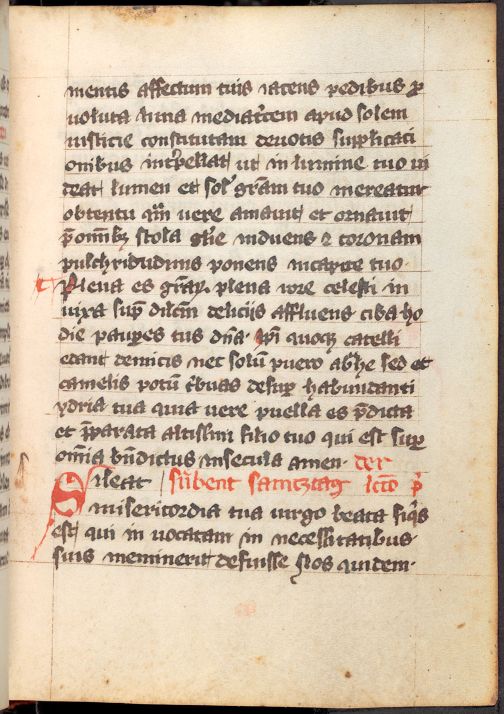 mentis affectum tuis iacens pedibus ꝓ
uoluta luna mediatͥcem apud solem
iusticie constitutam deuotis supplicati
onibus int̾pellat ut in lumine tuo ui
deat lumen et sol̾ gr̄am tuo mereatur
obtentu qui uere amauit et ornauit
p̄ omībꝫ stola gl̄ie induens ⁊ coronam
pulchridudinis ponens in capite tuo
Plena es gr̄aꝝ plena rore celesti in
nixa sup̄ dilc̄m delicijs affluens ciba ho
die paupes tuos dn̄a ip̄i quoqꝫ catelli
edant de micis nec solū puero abrahe sed et
camelis potū tͥbuas desuꝑ habundanti
ydria tua quia uere puella es p̄dicta
et p̄parata altissimi filio tuo qui est suꝑ
om̄ia bn̄dictus in secula amen der
Sileat sūbent samcztag lcc̄o p̄
misericordia tua uirgo beata siqͥs
est qui inuocatam in necessitatibus
suis meminerit defuisse Nos quidem